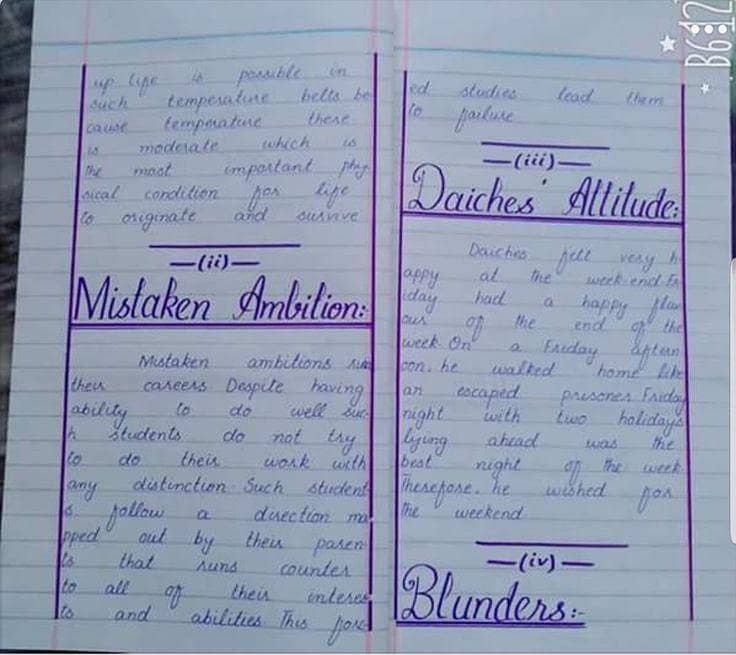 up life is possible in
such temperature belts be
cause temperature there
is moderate which is
the most important phy
sical condition for life
to originate and survive
—(ii)—
Mistaken Ambition:
Mistaken ambitions
their careers Despite having
ability to do well suc
h students do not try
to do their work with
any distinction. Such student
s follow a direction ma
pped out by their paren
ts that runs counter
to all of their interes
ts and abilities. This forc
ed studies lead them
to failure
—(iii)—
Daiches' Attitude:
Daiches felt very h
appy at the week-end. Fr
iday had a happy flav
our of the end of the
week. On a Friday aftern
oon, he walked home like
an escaped prisoner. Friday
night with two holidays
lying ahead was the
best night of the week
Therefore, he wished for
the weekend
—(iv)—
Blunders:-
B612